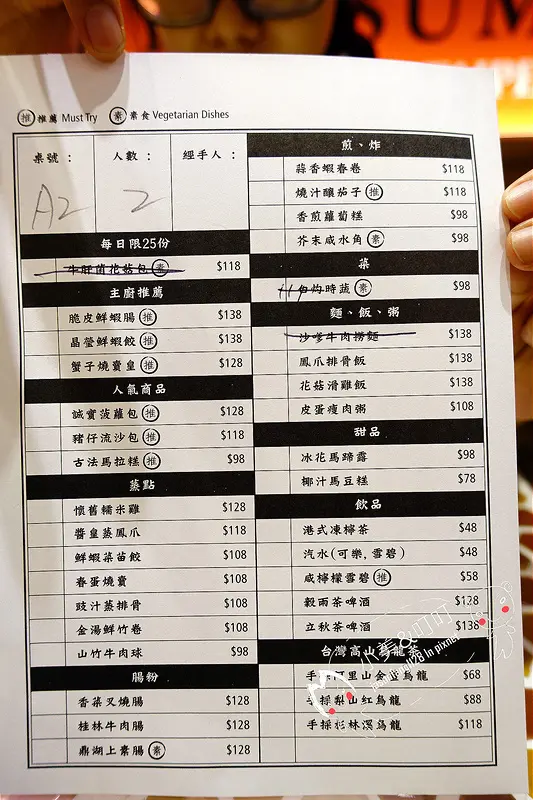 SUM
推 推薦 Must Try 素 素食 Vegetarian Dishes
桌號： 人數： 經手人：
A2 2
每日限25份
$118
主廚推薦
脆皮鮮蝦腸 推 $138
晶瑩鮮蝦餃 推 $138
蟹子燒賣皇 推 $128
人氣商品
誠實菠蘿包 推 $128
豬仔流沙包 推 $118
古法馬拉糕 推 $98
蒸點
懷舊糯米雞 $128
醬皇蒸鳳爪 $118
鮮蝦菜苗餃 $108
春蛋燒賣 $108
豉汁蒸排骨 $108
金湯鮮竹卷 $108
山竹牛肉球 $98
腸粉
香菜叉燒腸 $128
桂林牛肉腸 $128
鼎湖上素腸 素 $128
煎、炸
蒜香蝦春卷 $118
燒汁釀茄子 推 $118
香煎蘿蔔糕 $98
芥末咸水角 素 $98
菜
灼時蔬 素 $98
麵、飯、粥
沙爹牛肉撈麵 $138
鳳爪排骨飯 $138
花菇滑雞飯 $138
皮蛋瘦肉粥 $108
甜品
冰花馬蹄露 $98
椰汁馬豆糕 $78
飲品
港式凍檸茶 $48
汽水(可樂, 雪碧) $48
咸檸檬雪碧 推 $58
穀雨茶啤酒 $138
立秋茶啤酒 $138
台灣高山烏龍茶
手採阿里山金萱烏龍 $68
手採梨山紅烏龍 $88
手採杉林溪烏龍 $118
小美&叮叮